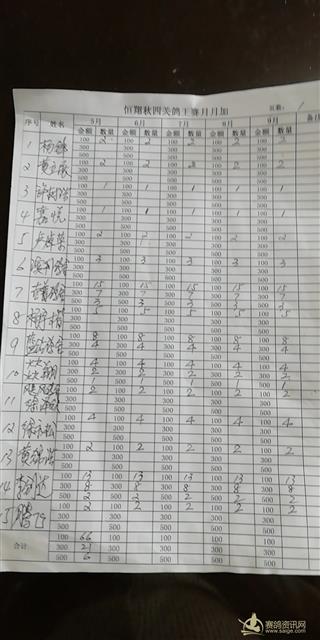 恒翔秋四关鸽王赛月月加 页数： 1
序号 姓名 5月 6月 7月 8月 9月 备注
金额 数量 金额 数量 金额 数量 金额 数量 金额 数量
1 杨 100 2 100 2 100 2 100 2 100 2
300 300 300 300 300
500 500 500 500 500
2 黄 100 2 100 2 100 2 100 2 100 2
300 300 300 300 300
500 500 500 500 500
3 100 1 100 1 100 1 100 1 100 1
300 300 300 300 300
500 500 500 500 500
4 100 1 100 1 100 1 100 1 100 1
300 300 300 300 300
500 500 500 500 500
5 100 2 100 2 100 2 100 2 100 2
300 300 300 300 300
500 500 500 500 500
6 100 3 100 3 100 3 100 3 100 3
300 300 300 300 300
500 500 500 500 500
7 100 15 100 15 100 15 100 15 100 15
300 7 300 7 300 7 300 7 300 7
500 3 500 3 500 3 500 3 500 3
8 100 5 100 5 100 5 100 5 100 5
300 300 300 300 300
500 500 500 500 500
9 100 8 100 8 100 8 100 8 100 8
300 4 300 4 300 4 300 4 300 4
500 500 500 500 500
10 100 4 100 4 100 4 100 4 100 4
300 2 300 2 300 2 300 2 300 2
500 1 500 1 500 1 500 1 500 1
11 100 2 100 2 100 2 100 2 100 2
300 300 300 300 300
500 500 500 500 500
12 徐永松 100 4 100 4 100 4 100 4 100 4
300 300 300 300 300
500 500 500 500 500
13 黄 100 2 100 2 100 2 100 2 100 2
300 300 300 300 300
500 500 500 500 500
14 李 100 13 100 13 100 13 100 13 100 13
300 8 300 8 300 8 300 8 300 8
500 2 500 2 500 2 500 2 500 2
15 腾飞 100 2 100 2 100 2 100 2 100 2
300 300 300 300 300
500 500 500 500 500
合计 100 66 100 100 100 100
300 21 300 300 300 300
500 6 500 500 500 500
赛鸽资讯网
www.saige.com